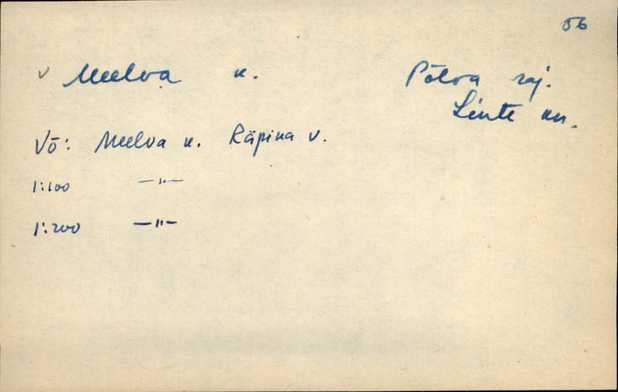 56
✓ Meelva k. Põlva raj.
Linte kn.
Võ: Meelva k. Räpina v.
1:100 —"—
1:200 —"—